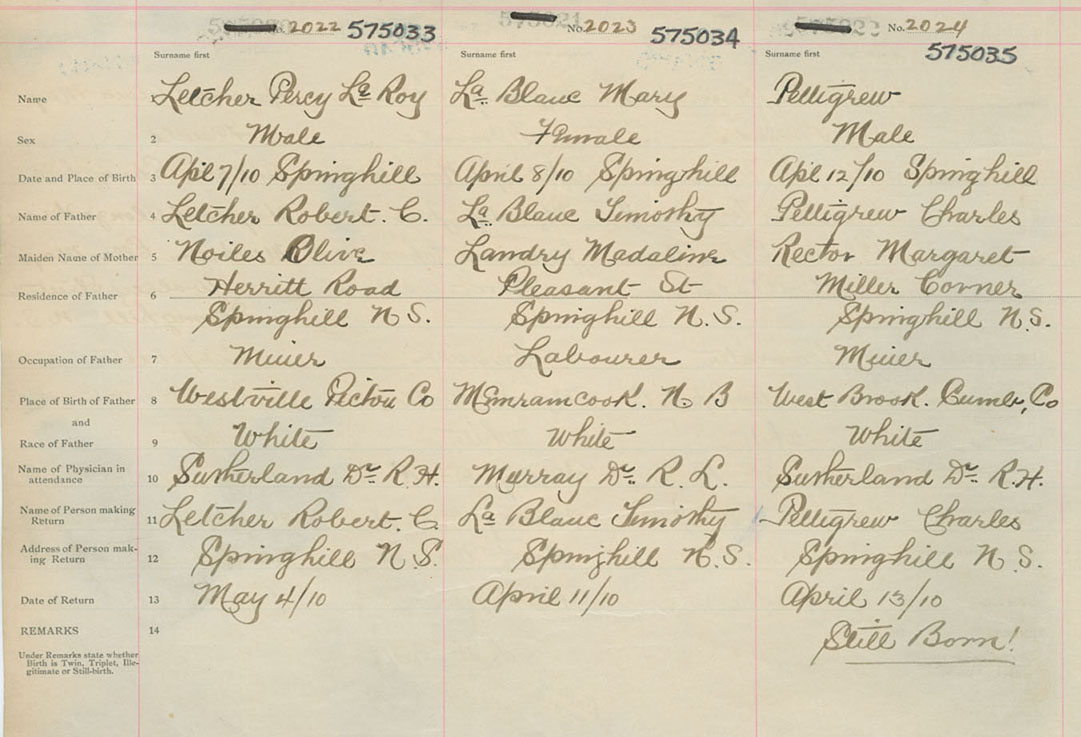 No. 2022 575033
No. 2023 575034
No. 2024 575035
Surname first Surname first Surname first
Name 1 Letcher Percy La Roy La Blanc Mary Pettigrew
Sex 2 Male Female Male
Date and Place of Birth 3 Apl 7/10 Springhill April 8/10 Springhill Apl 12/10 Springhill
Name of Father 4 Letcher Robert. C. La Blanc Timothy Pettigrew Charles
Maiden Name of Mother 5 Noiles Olive Landry Madaline Rector Margaret
Residence of Father 6 Herritt Road Pleasant St Miller Corner
Springhill N S. Springhill N.S. Springhill N.S.
Occupation of Father 7 Miner Labourer Miner
Place of Birth of Father 8 Westville Pictou Co Memramcook. N B West Brook. Cumb. Co
and
Race of Father 9 White White White
Name of Physician in
attendance 10 Sutherland Dr. R.H. Murray Dr. R. L. Sutherland Dr. R.H.
Name of Person making
Return 11 Letcher Robert. C La Blanc Timothy Pettigrew Charles
Address of Person mak-
ing Return 12 Springhill N.S. Springhill N.S. Springhill N.S.
Date of Return 13 May 4/10 April 11/10 April 13/10
REMARKS 14 Still Born!
Under Remarks state whether
Birth is Twin, Triplet, Ille-
gitimate or Still-birth.